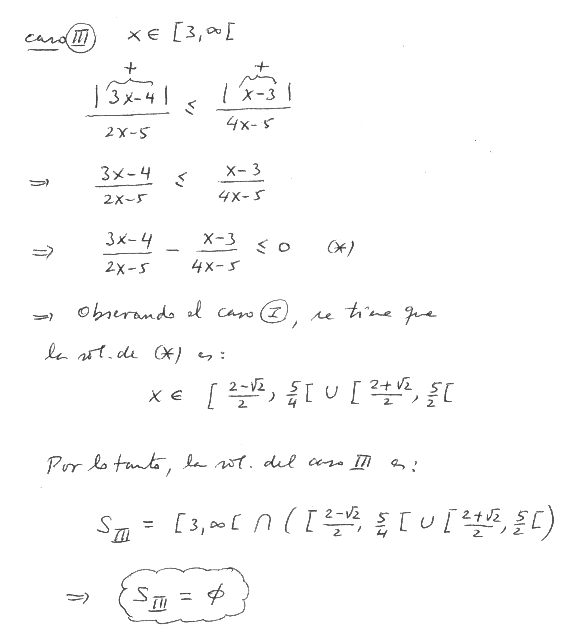 caso III x ∈ [3,∞[
+ +
|3x-4| / 2x-5 ≤ |x-3| / 4x-5
⇒ 3x-4 / 2x-5 ≤ x-3 / 4x-5
⇒ 3x-4 / 2x-5 - x-3 / 4x-5 ≤ 0 (*)
⇒ Observando el caso I, se tiene que
la sol. de (*) es:
x ∈ [ 2-√2 / 2, 5/4 [ ∪ [ 2+√2 / 2, 5/2 [
Por lo tanto, la sol. del caso III es:
S_III = [3,∞[ ∩ ( [ 2-√2 / 2, 5/4 [ ∪ [ 2+√2 / 2, 5/2 [ )
⇒ S_III = ϕ